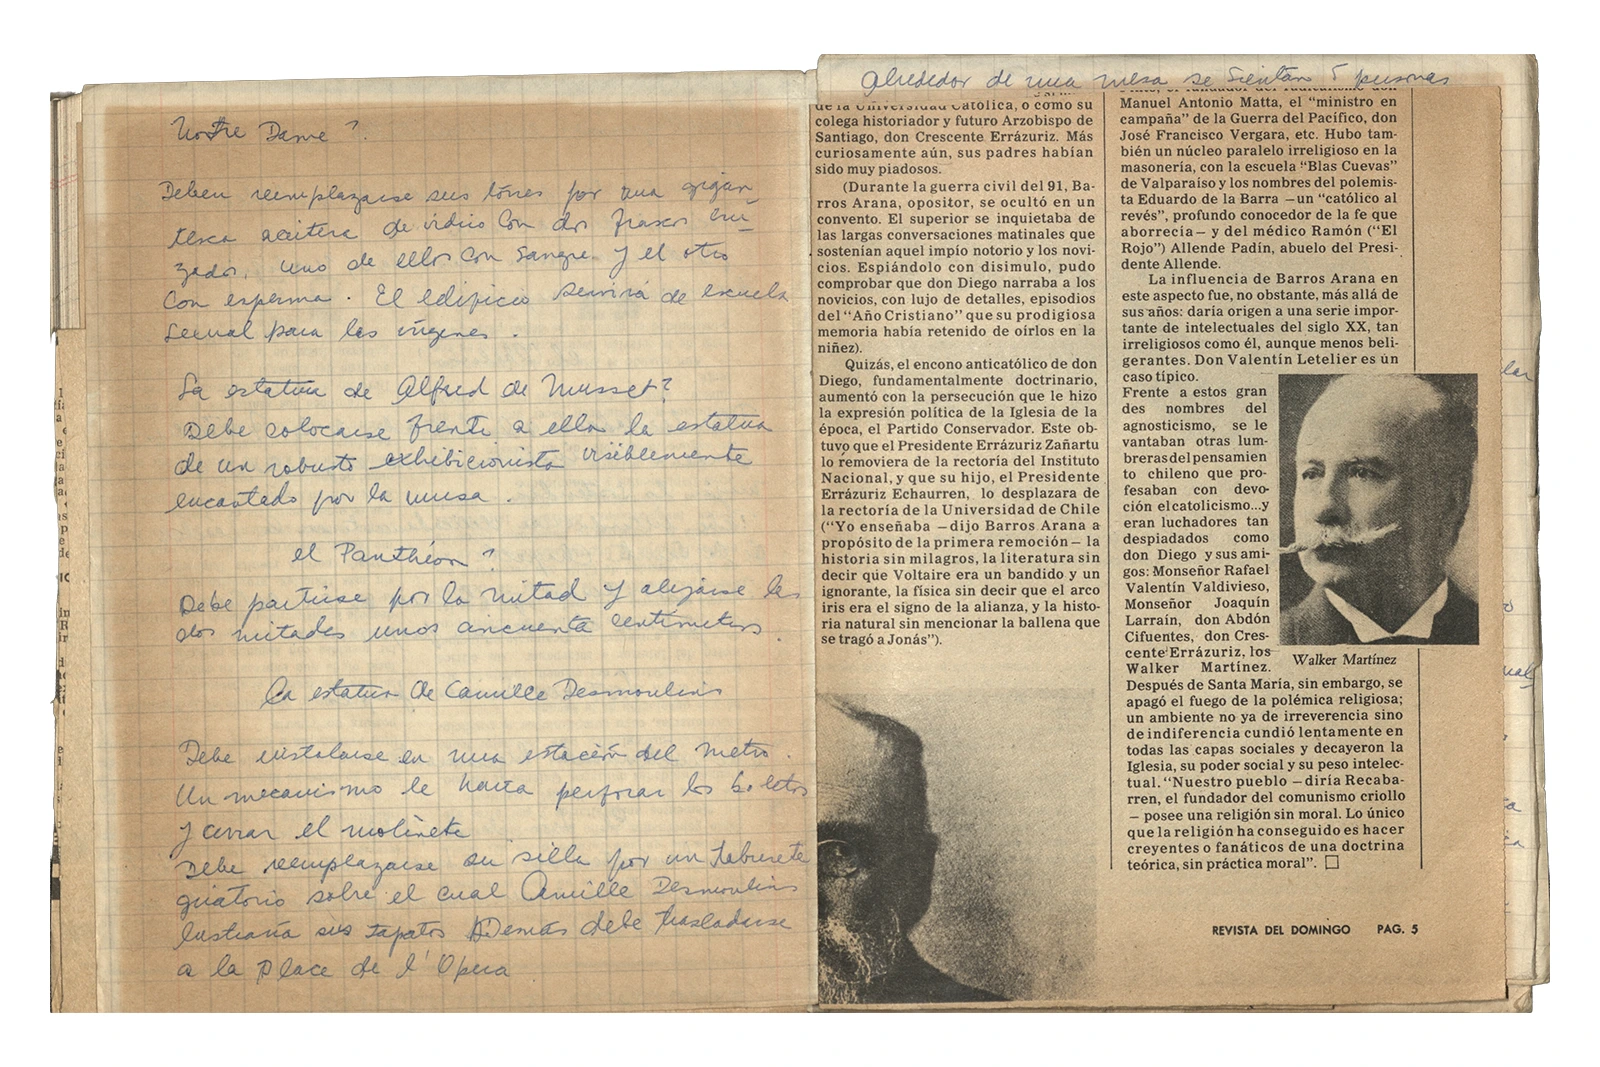 Notre Dame ?.
Deben reemplazarse sus torres por una gigan_
tesca aceitera de vidrio con dos frascos cru_
zados, uno de ellos con sangre y el otro
con esperma. El edificio servirá de escuela
sexual para las vírgenes.
La estatua de Alfred de Musset?
Debe colocarse frente a ella la estatua
de un robusto exhibicionista visiblemente
encantado por la musa.
el Panthéon?
Debe partirse por la mitad y alejarse las
dos mitades unos cincuenta centímetros.
La estatua de Camille Desmoulins
Debe instalarse en una estación del metro.
Un mecanismo le haría perforar los boletos
y cerrar el molinete
Debe reemplazarse su silla por un taburete
giratorio sobre el cual Camille Desmoulins
lustraría sus zapatos Además debe trasladarse
a la Place de l'Opera
Alrededor de una mesa se sientan 5 personas
de la Universidad Católica, o como su
colega historiador y futuro Arzobispo de
Santiago, don Crescente Errázuriz. Más
curiosamente aún, sus padres habían
sido muy piadosos.
(Durante la guerra civil del 91, Ba-
rros Arana, opositor, se ocultó en un
convento. El superior se inquietaba de
las largas conversaciones matinales que
sostenían aquel impío notorio y los novi-
cios. Espiándolo con disimulo, pudo
comprobar que don Diego narraba a los
novicios, con lujo de detalles, episodios
del "Año Cristiano" que su prodigiosa
memoria había retenido de oírlos en la
niñez).
Quizás, el encono anticatólico de don
Diego, fundamentalmente doctrinario,
aumentó con la persecución que le hizo
la expresión política de la Iglesia de la
época, el Partido Conservador. Este ob-
tuvo que el Presidente Errázuriz Zañartu
lo removiera de la rectoría del Instituto
Nacional, y que su hijo, el Presidente
Errázuriz Echaurren, lo desplazara de
la rectoría de la Universidad de Chile
("Yo enseñaba —dijo Barros Arana a
propósito de la primera remoción— la
historia sin milagros, la literatura sin
decir que Voltaire era un bandido y un
ignorante, la física sin decir que el arco
iris era el signo de la alianza, y la histo-
ria natural sin mencionar la ballena que
se tragó a Jonás").
Manuel Antonio Matta, el "ministro en
campaña" de la Guerra del Pacífico, don
José Francisco Vergara, etc. Hubo tam-
bién un núcleo paralelo irreligioso en la
masonería, con la escuela "Blas Cuevas"
de Valparaíso y los nombres del polemis-
ta Eduardo de la Barra —un "católico al
revés", profundo conocedor de la fe que
aborrecía— y del médico Ramón ("El
Rojo") Allende Padín, abuelo del Presi-
dente Allende.
La influencia de Barros Arana en
este aspecto fue, no obstante, más allá de
sus años: daría origen a una serie impor-
tante de intelectuales del siglo XX, tan
irreligiosos como él, aunque menos beli-
gerantes. Don Valentín Letelier es un
caso típico.
Frente a estos gran
des nombres del
agnosticismo, se le
vantaban otras lum-
breras del pensamien
to chileno que pro-
fesaban con devo-
ción el catolicismo...y
eran luchadores tan
despiadados como
don Diego y sus ami-
gos: Monseñor Rafael
Valentín Valdivieso,
Monseñor Joaquín
Larraín, don Abdón
Cifuentes, don Cres-
cente Errázuriz, los
Walker Martínez.
Walker Martínez
Después de Santa María, sin embargo, se
apagó el fuego de la polémica religiosa;
un ambiente no ya de irreverencia sino
de indiferencia cundió lentamente en
todas las capas sociales y decayeron la
Iglesia, su poder social y su peso intelec-
tual. "Nuestro pueblo —diría Recaba-
rren, el fundador del comunismo criollo
— posee una religión sin moral. Lo único
que la religión ha conseguido es hacer
creyentes o fanáticos de una doctrina
teórica, sin práctica moral". □
REVISTA DEL DOMINGO PAG. 5